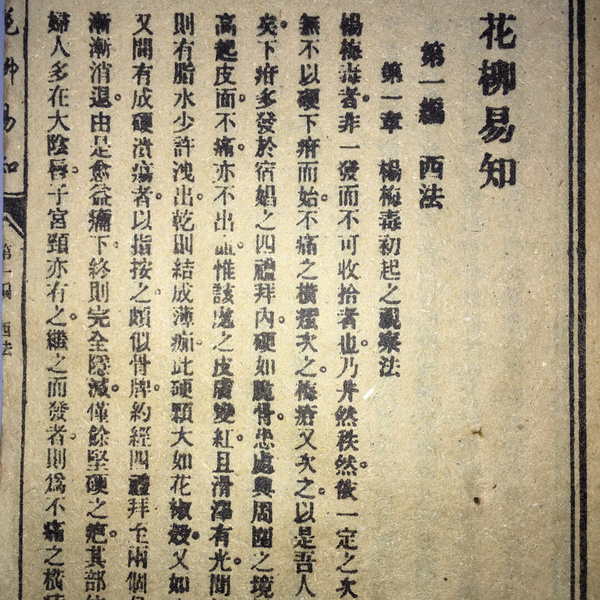 花柳易知
第一編　西法
第一章　楊梅毒初起之視察法
楊梅毒者。非一發而不可收拾者也。乃井然秩然。依一定之次
無不以硬下疳而始。不痛之橫痃次之。梅瘡又次之。以是吾人
矣。下疳多發於宿娼之四禮拜內。硬如脆骨。患處與周圍之境
高起。皮面不痛。亦不出血。惟該處之皮膚變紅。且滑澤有光。間
則有脂水少許洩出。乾則結成薄痂。此硬顆大如花椒殼。又如
又間有成硬潰瘍者。以指按之。頗似骨牌。約經四禮拜至兩個
漸漸消退。由是愈益痛下。終則完全隱滅。僅餘堅硬之疤。其部
婦人多在大陰唇。子宮頸亦有之。繼之而發者。則為不痛之橫
花柳易知
第一編　西法